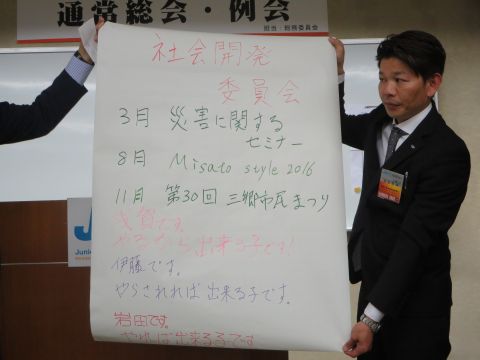 通常総会・例会
担当:総務委員会
社会開発
委員会
3月 災害に関する
セミナー
8月 Misato style 2016
11月 第30回 三郷市民まつり
浅賀です。
やるなら出来る子です!
伊藤です。
やらされれば出来る子です。
岩田です。
やれば出来る子です
J
Junio